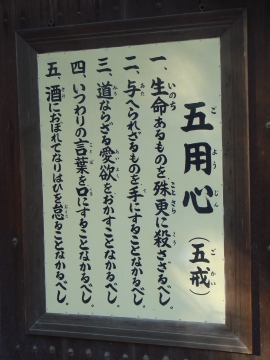 五用心（五戒）
一、生命あるものを殊更に殺さざるべし。
二、与へられざるものを手にすることなかるべし。
三、道ならざる愛欲をおかすことなかるべし。
四、いつわりの言葉を口にすることなかるべし。
五、酒におぼれてなりはひを怠ることなかるべし。